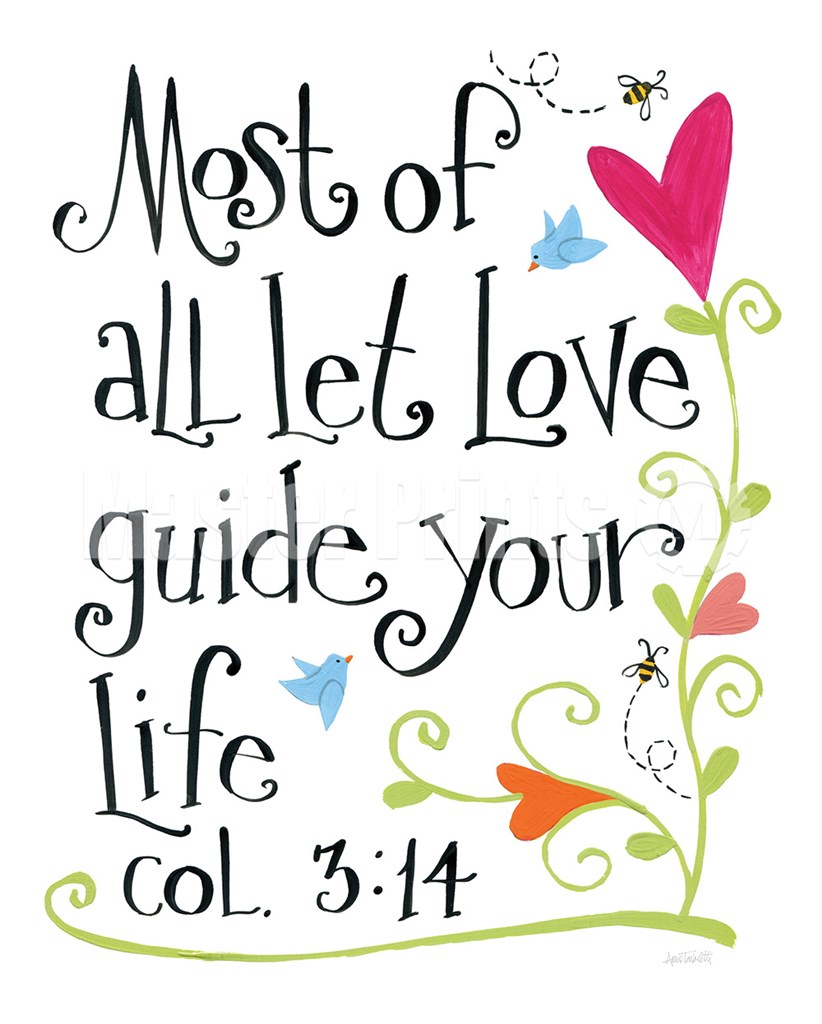 Most of
all let Love
guide your
Life
Col. 3:14
Master Prints